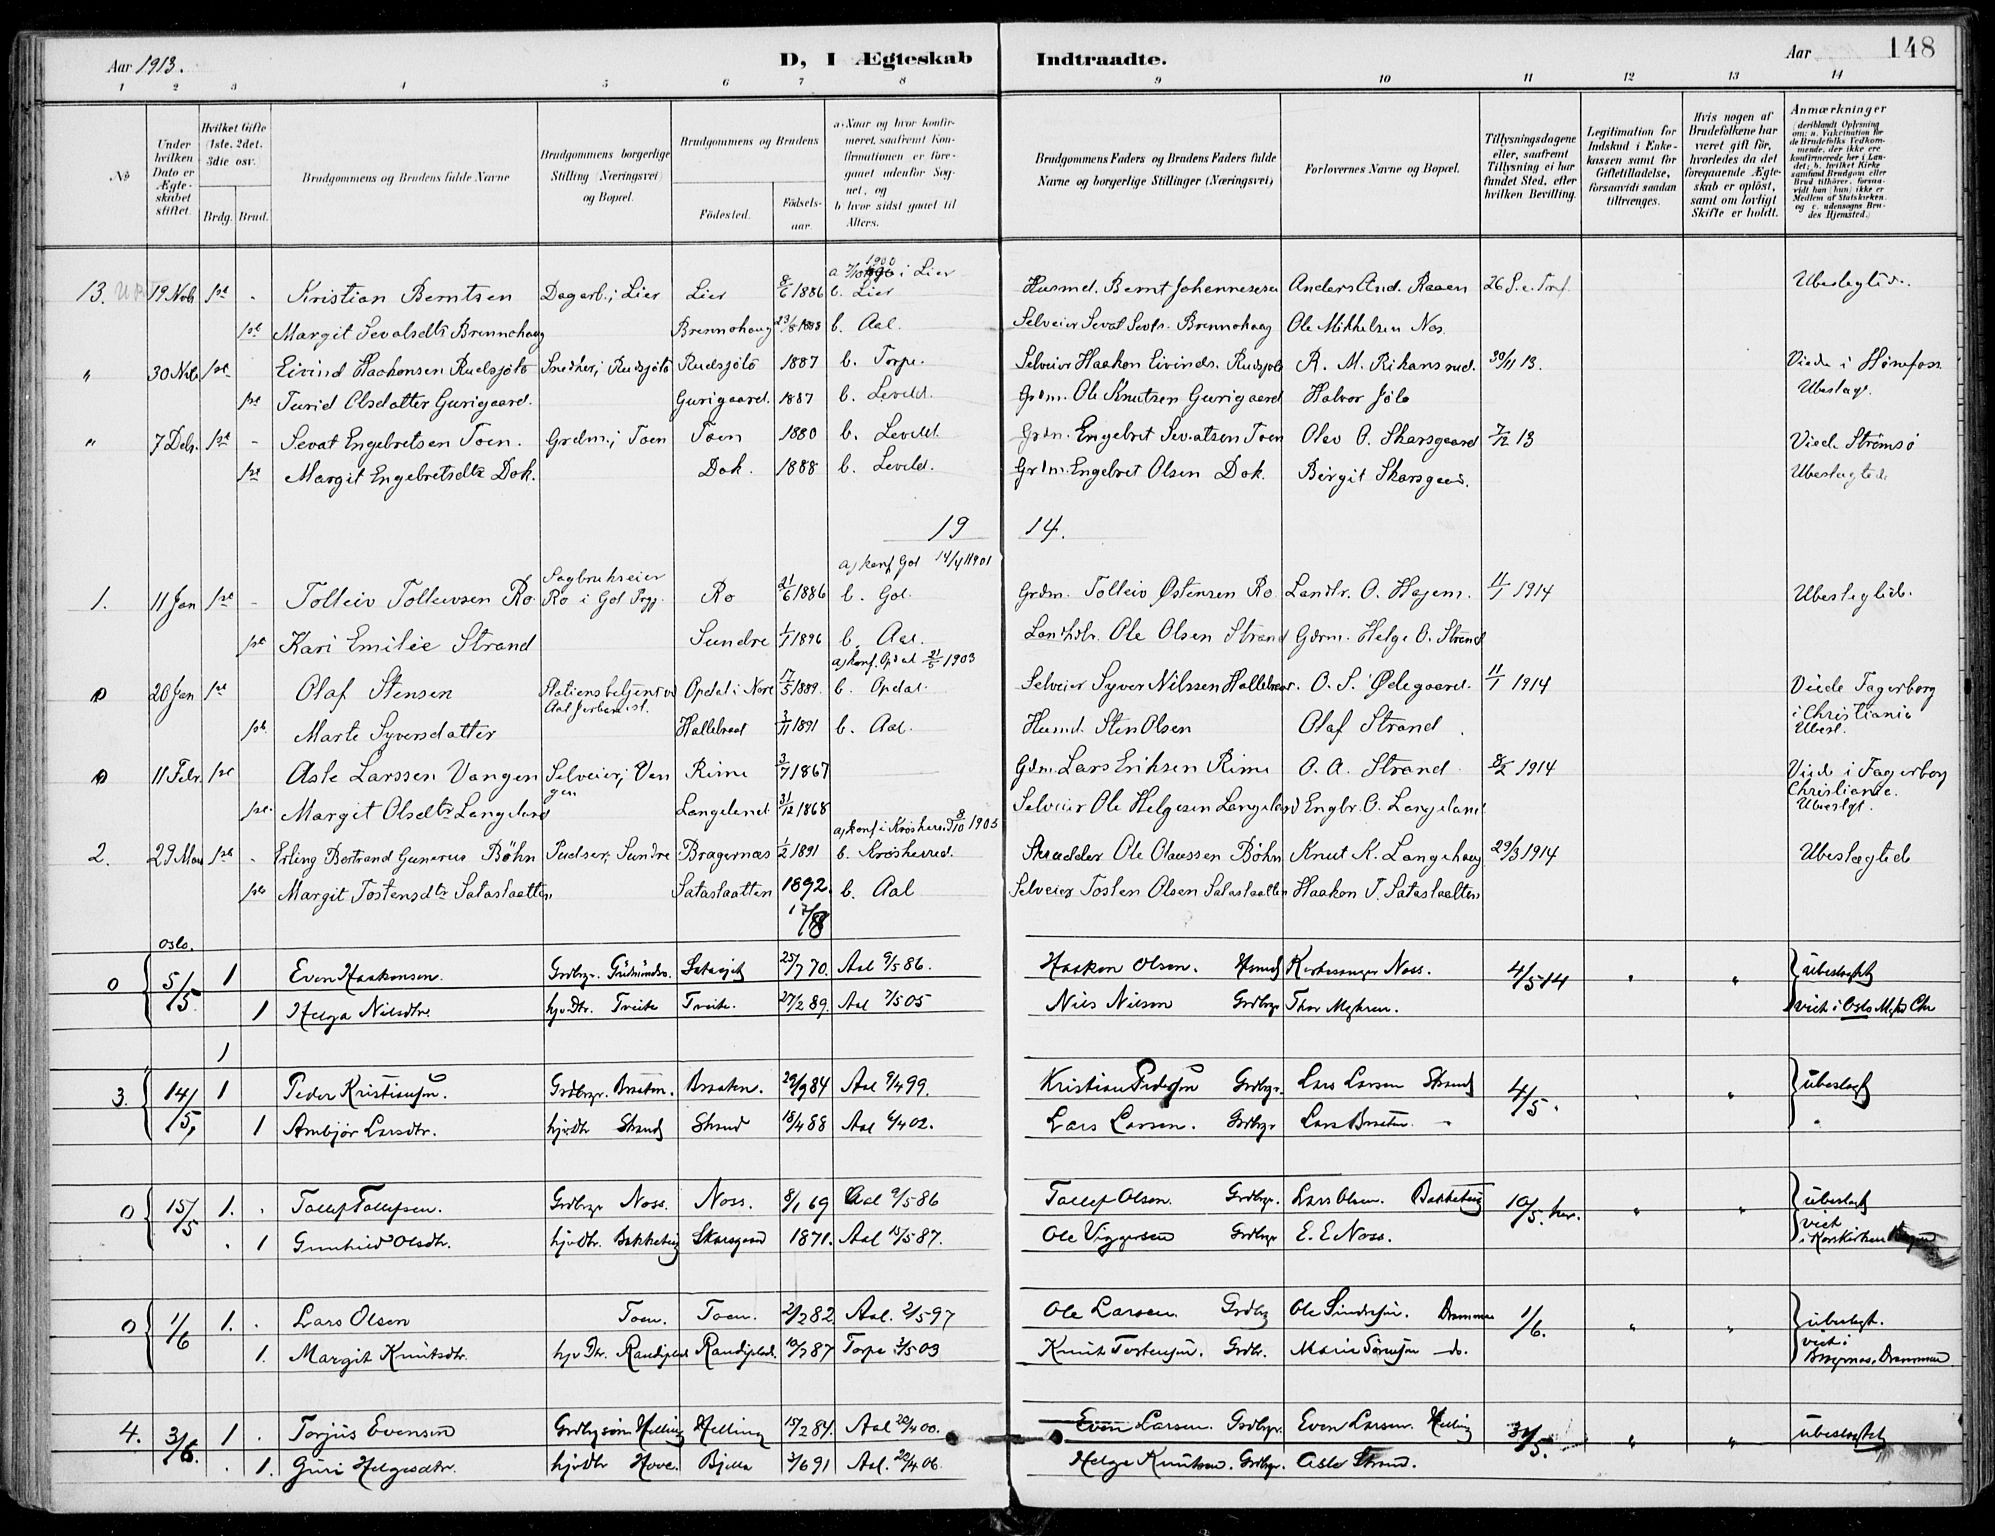 Aar 1913.
D, I Ægteskab Indtraadte.
Aar 148
1 2 3 4 5 6 7 8 9 10 11 12 13 14
No
Under hvilken Dato er Ægteskabet stiftet.
Hvilket Gifte (1ste. 2det. 3die osv.
Brdg. Brud.
Brudgommens og Brudens fulde Navne
Brudgommens borgerlige Stilling (Næringsvei) og Bopæl.
Brudgommens og Brudens
Fødested. Fødselsaar.
a. Naar og hvor konfirmeret, saafremt Konfirmationen er foregaaet udenfor Sognet, og
b. hvor sidst gaaet til Alters.
Brudgommens Faders og Brudens Faders fulde Navne og borgerlige Stillinger (Næringsvei)
Forlovernes Navne og Bopæl.
Tillysningsdagene eller, saafremt Tillysning ei har fundet Sted, efter hvilken Bevilling.
Legitimation for Indskud i Enkekassen samt for Giftetilladelse, forsaavidt saadan tiltrænges.
Hvis nogen af Brudefolkene har været gift før, hvorledes da det foregaaende Ægteskab er opløst, samt om lovligt Skifte er holdt.
Anmærkninger (deriblandt Oplysning om: a. Vakcination for de Brudefolks Vedkommende, der ikke ere konfirmerede her i Landet; b. hvilket Kirkesamfund Brudgom eller Brud tilhører, forsaavidt han (hun) ikke er Medlem af Statskirken. og c. udensogns Brudes Hjemsted.)
13. 19 Nob 1ste - Kristian Berntsen Dagarb.; Lier Lier 8/6 1886 1900 i Lier b. Lier Husmd. Bernt Johannesesen Anders And. Raaen Ubeslegtede.
1ste Margit Sevatsdtr Brennehaug Brennehaug 23/8 1888 b. Aal. Selveier Sevat Sevts. Brennehaug Ole Mikkelsen Nos.
" 30 Nob 1ste Eivind Haakensen Rudsjöto Snedker; Rudsjöto Rudsjöto 1887 b. Torpe. Selveier Haakon Eivinds. Rudsjöto R. M. Rikansrud. 30/11 13. Viede i Hønefoss
1ste Turid Olsdatter Gurigaard. Gurigaard. 1887 b. Leveld. Grdm. Ole Knutsen Gurigaard Halvor Jölo Ubeslegt.
" 7 Debr. 1ste - Sevat Engebretsen Toen. Grdm.; Toen Toen 1880 b. Leveld. Grdm. Engebret Sevatsen Toen Olav O. Skarsgaard 7/12 13 Viede Strømsø
1ste Margit Engebretsdtr Dok. Dok. 1888 b. Leveld. Grdm. Engebret Olsen Dok. Birgit Skarsgaard. Ubeslegtede
19 14.
1. 11 Jan 1ste - Tolleiv Tolleivsen Ro Sagbrukseier Ro i Gol Ro 21/6 1886 a) konf Gol 14/4 1901 b. Gol. Grdm. Tolleiv Østensen Ro Landhr. O. Hagem. 11/1 1914 Ubeslegtede.
1ste Kari Emilie Strand Sundre 1/1 1896 b. Aal. Landhdlr. Ole Olsen Strand Grdm. Helge O. Strand
0 20 Jan 1ste Olaf Stensen Stationsbetjent ved Aal Jerbanest. Opdal i Nore 17/5 1889. a) konf. Opdal 21/5 1903 b. Opdal. Selveier Syver Nilssen Hallebraat. O. S. Ødegaard. 11/1 1914 Viede Fagerborg i Christiania
1ste. Marte Syversdatter Hallebraat 3/11 1891 b. Aal. Husmd. Sten Olsen Olaf Strand Ubesl.
0 11 Febr. 1ste Asle Larssen Vangen Selveier; Vangen Rime 3/7 1867 Grdm. Lars Eriksen Rime O. A. Strand 8/2 1914 Viede i Fagerborg Christiania.
1ste. Margit Olsdtr Langeland Langeland 31/12 1868 Selveier Ole Helgesen Langeland Engbr. O. Langeland Ubeslgt.
2. 29 Mars 1ste - Erling Bertrand Gunerus Böhn Pudser; Sundre Bragernæs 1/2 1891 a) konf i Krøsherred 8/10 1905 b. Krøsherred. Skrædder Ole Olaussen Böhn Knut K. Langehaug 29/3 1914 Ubeslegtede
1ste Margit Tostensdtr Sataslaatten Sataslaatten 1892. 17/8 b. Aal Selveier Tosten Olsen Sataslaatten Haakon T. Sataslaatten
Oslo.
0 5/5 1 Even Haakensen. Grdbrgr. Satasjet 25/7 70. Aal 9/5 86. Haaken Olsen. Kirkesanger Noss. 4/5 14 " " ubeslegtet
1 Helga Nilsdtr. hjv Dtr. Tveite Tveite. 27/2 89. Aal 7/5 05 Nils Nilsen Grdbrgr Thor Myhren. viet i Oslo
1
3. 14/5. 1 Peder Kristiansen. Grdbrgr. Braaten. Braaten. 29/9 84 Aal 9/4 99. Kristian Pedersen Grdbrgr. Lars Larsen Strand 4/5. " ubeslegt
1 Ambjör Larsdtr. hjv Dtr Strand Strand 18/4 88 Aal 6/4 02. Lars Larsen. Grdbrgr Lars Braaten. "
0 15/5 1. . Tollef Tollefsen. Grdbrgr Noss. Noss. 8/1 69 Aal 9/5 86 Tollef Olsen. Grdbrgr. Lars Olsen. Bakkehaug 10/5. her. " " ubeslegt
1 Gunhild Olsdtr. hjv Dtr. Bakkehaug Skarsgaard 1871. Aal 15/5 87. Ole Viggersen Grdbrgr E. E Noss. viet i Korskirken Bergen
0 1/6 1. . Lars Olsen Toen. Toen. 2/2 82 Aal. 2/5 97 Ole Larsen. Grdbrg Ole Drammen 1/6. " " ubeslegt.
1. Margit Knutsdtr. hjv Dtr. Randiplad. Randiplad. 10/7 87 Torpe 3/5 03 Knut Torstensen. Grdbr. Marie Sörensen do. viet i Bragernæs, Drammen
4. 3/6. 1 . Torjus Evensen Grdbrgsön Helling Helling 15/2 84. Aal 20/4 00. Even Larsen. Grdbrgr. Even Larsen. Helling 31/5. " " ubeslegtet
1. Guri Helgesdtr. hjv Dtr Hove. Bjella 3/6 91 Aal. 20/4 06. Helge Knutsen. Grdbrgr. Asle Strand.